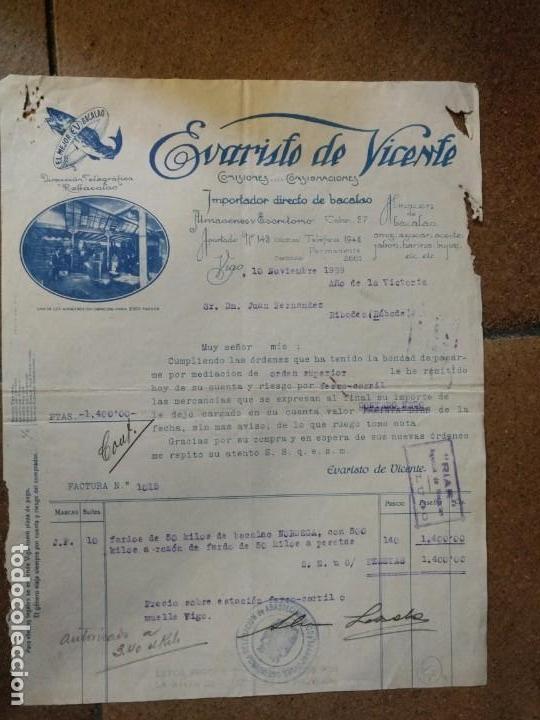 EL MEJOR BACALAO
EV
Evaristo de Vicente
COMISIONES .... CONSIGNACIONES
Dirección Telegráfica
Importador directo de bacalao
Almacenes y Escritorio
57
Almacén
de
bacalao
arroz, azúcar, aceite
jabón, harina,
etc. etc.
Apartado Nº 143
Teléfono 1946
Permanente
2601
Vigo, 10 Noviembre 1939
Año de la Victoria
Sr. Dn. Juan Fernandez
Ribadeo (Rábade)
Muy señor mío:
Cumpliendo las órdenes que ha tenido la bondad de pasar-
me por mediación de orden superior le he remitido
hoy de su cuenta y riesgo por ferro-carril
las mercancías que se expresan al final su importe de
PTAS. -1,400'00- le dejo cargado en su cuenta valor de la
fecha, sin mas aviso, de lo que ruego tome nota.
Gracias por su compra y en espera de sus nuevas órdenes
me repito su atento S. S. q. e. s. m.
Conf.
Evaristo de Vicente
FACTURA N.º 1015
RIAL
LUGO
MARCAS Bultos Precio Pesetas
J.F. 10 fardos de 50 kilos de bacalao NORUEGA, con 500
kilos a razón de fardo de 50 kilos a pesetas 140 1,400'00
S. E. u O/ PESETAS 1,400'00
Precio sobre estación ferro-carril o
muelle Vigo.
Autorizado a
3.40 el Kilo
El género viaja siempre por cuenta y riesgo del comprador.
todocoleccion